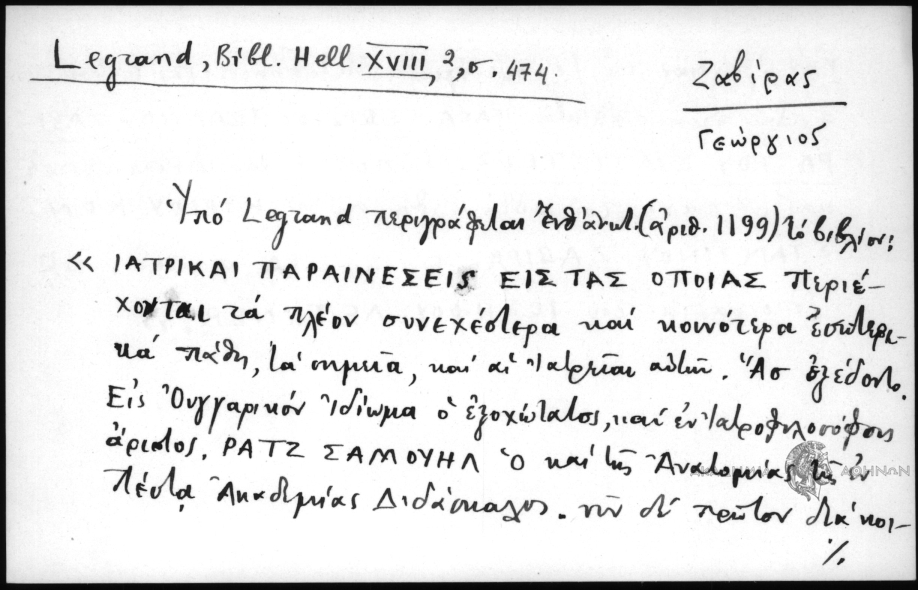 Legrand, Βibl. Hell. XVIII, 2, σ. 474.
Ζαβίρας
Γεώργιος
Ὑπό Legrand περιγράφεται ἐνταῦθα (ἀριθ. 1199) τό βιβλίον:
« ΙΑΤΡΙΚΑΙ ΠΑΡΑΙΝΕΣΕΙΣ ΕΙΣ ΤΑΣ ΟΠΟΙΑΣ περιέ-
χονται τά πλέον συνεχέστερα καί κοινότερα ἐσωτερι-
κά πάθη, τά σημεῖα, καί αἱ Ἰατρεῖαι αὐτῶν. Ἅς ἐξέδοτο
Εἰς Οὐγγαρικόν Ἰδίωμα ὁ ἐξοχώτατος, καί ἐν Ἰατροφιλοσόφοις
ἄριστος, ΡΑΤΖ ΣΑΜΟΥΗΛ Ὁ καί τῆς Ἀνατομίας τῆς ἐν
Πέστᾳ Ἀκαδημίας Διδάσκαλος. νῦν δέ πρῶτον διά κοι-
·/.
ΑΘΗΝΩΝ